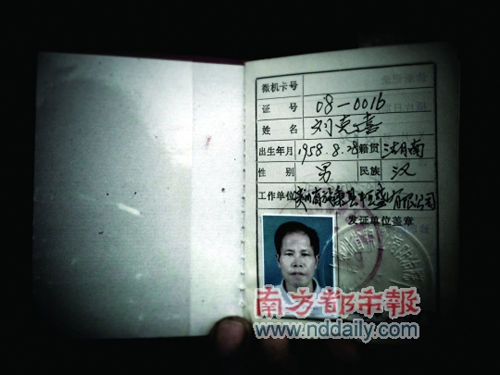 微机卡号
证号 08-0016
姓名 刘克喜
出生年月 1958.8.28 籍贯 湖南
性别 男 民族 汉
工作单位 有限公司
发证单位盖章
南方都市報
www.nddaily.com